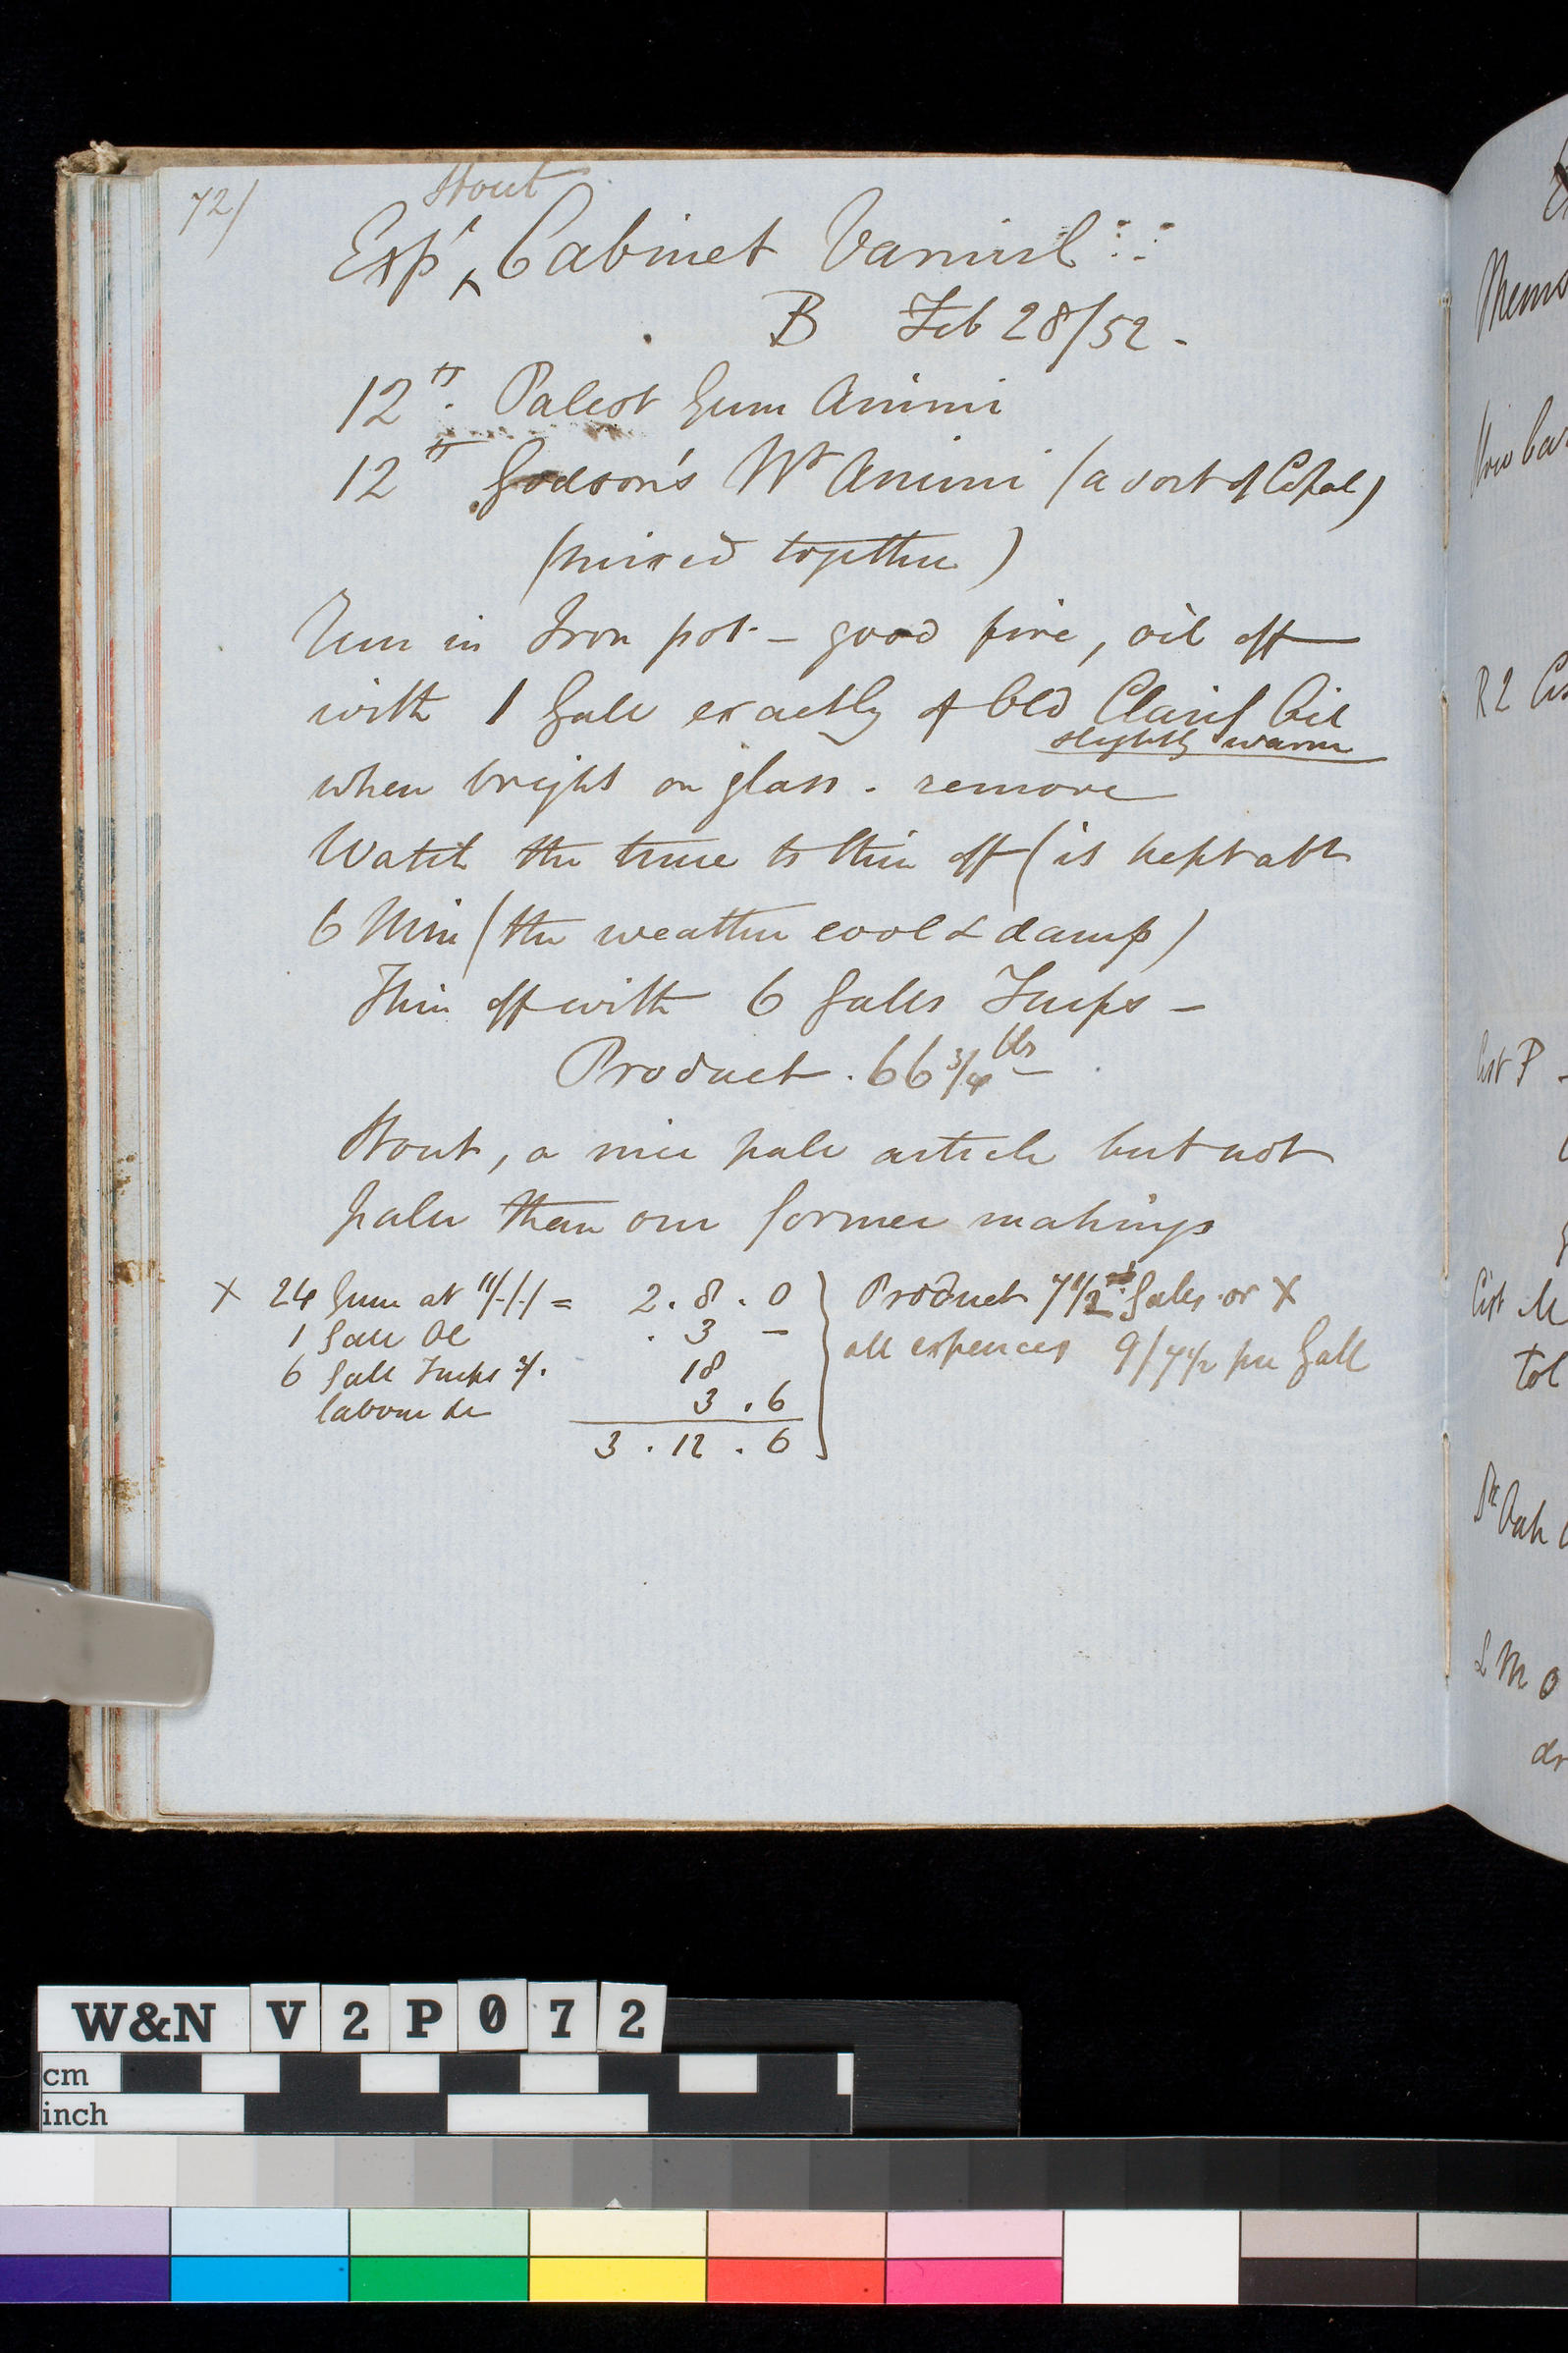 72/
Stout
Expt ^ Cabinet Varnish
B Feb 28/52 -
12 lb. Palest Gum Animi
12 lb Godson's Wt Animi (a sort of Copal)
(mixed together)
Run in Iron pot - good fire, oil off
with 1 Gall exactly of Old Clarif Oil
slightly warm
when bright on glass - remove
Watch the time to thin off (is kept abt
6 Min (the weather cool & damp)
Thin off with 6 Galls Turps -
Product . 66 3/4 lbs
Stout, a nice pale article but not
paler than our former makings
X 24 Gum at = 2 . 8 . 0
1 Gall Oil . 3 -
6 Gall Turps 3/. 18
labour &c 3 . 6
3 . 12 . 6
Product 7 1/2 Galls. or X
all expences 9/7 1/2 per Gall
Mems
R2
Cist P -
Cist M
tol
Dk Oak
L M O
W&N V2P072
cm
inch